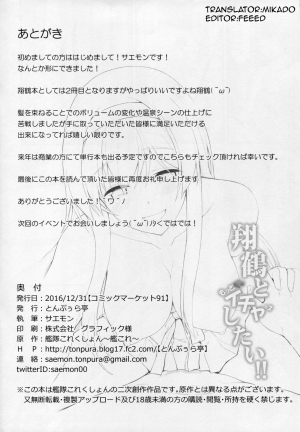 TRANSLATOR:MIKADO
EDITOR:FEEED
あとがき
初めましての方ははじめまして！サエモンです！
なんとか形にできました！
翔鶴本としては2冊目となりますがやっぱりいいですよね翔鶴（˘ω˘）
髪を束ねることでのボリュームの変化や温泉シーンの仕上げに
苦戦しましたが手に取っていただいた皆様に満足いただける
出来になってれば嬉しい限りです。
来年は商業の方にて単行本も出る予定ですのでこちらもチェック頂ければ幸いです。
最後にこの本を読んで頂いた皆様に再度お礼申し上げます
ありがとうございました！
次回のイベントでお会いしましょう（˘ω˘）ﾉｼではでは！
翔鶴と
イチャイチャ
したい!!
奥　付
発行日：2016/12/31【コミックマーケット91】
発　行：とんぷぅら亭
執　筆：サエモン
印　刷：株式会社　グラフィック様
原　作：艦隊これくしょん～艦これ～
Ｈ　Ｐ：http://tonpura.blog17.fc2.com/【とんぷぅら亭】
連　絡：saemon.tonpura@gmail.com
twitterID:saemon00
※この本は艦隊これくしょんの二次創作作品です。原作とは異なる点がございます。
又無断転載・複製アップロード及び18歳未満の方の購読・閲覧・所持を硬く禁じます。